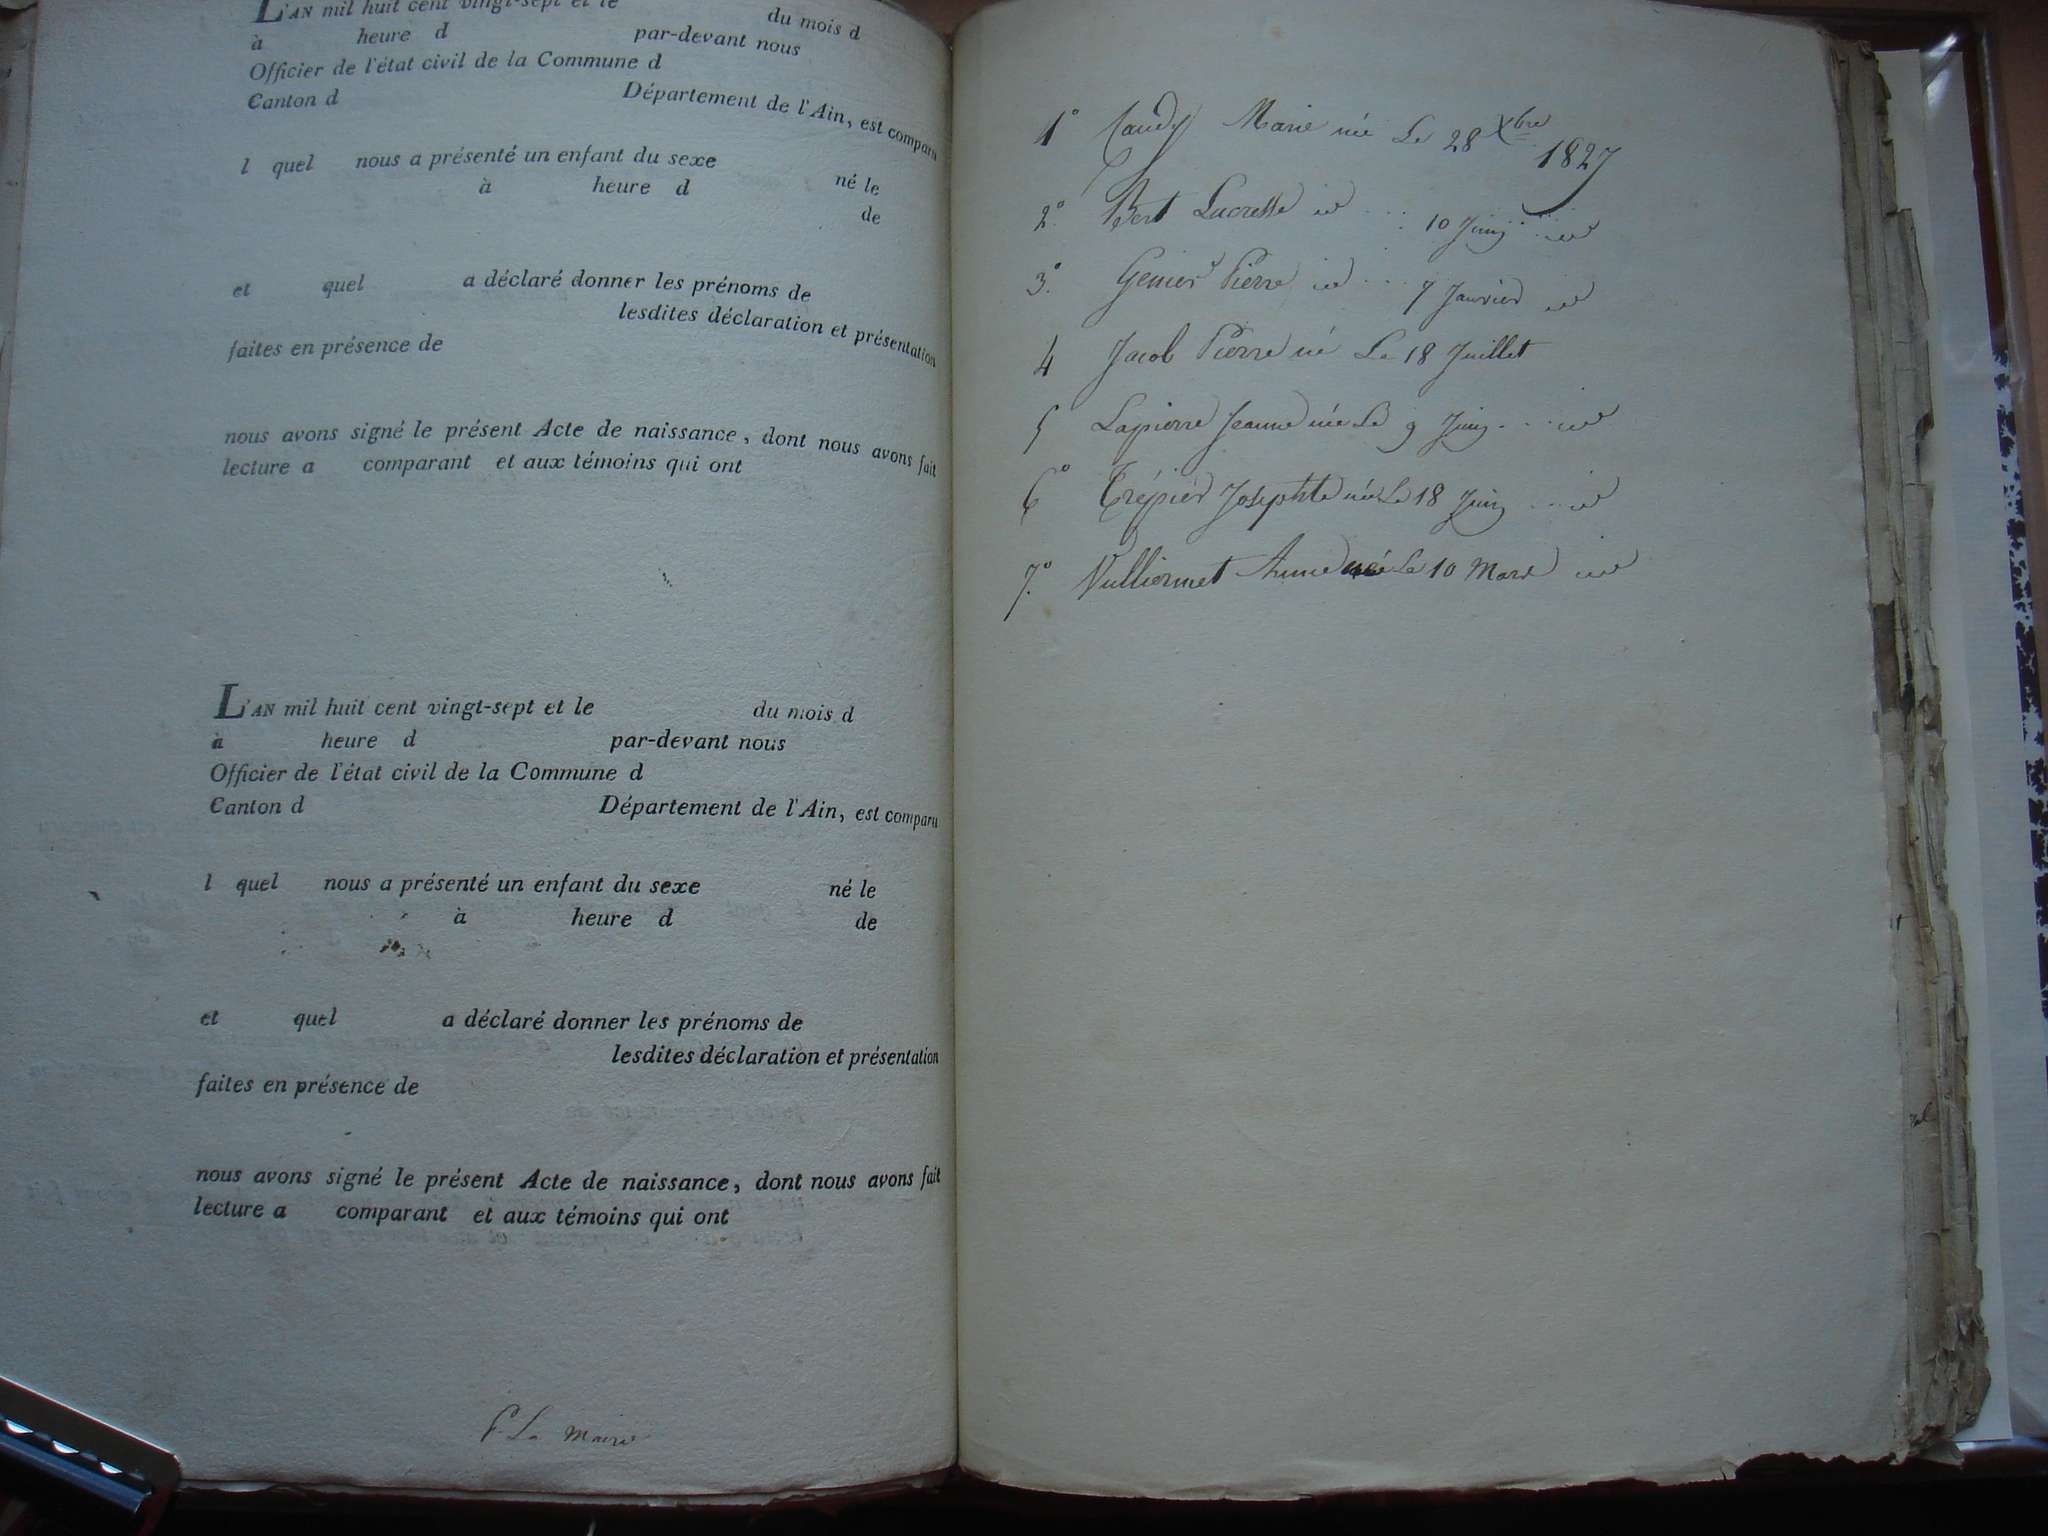 L'AN mil huit cent vingt-sept et le du mois d
à heure d par-devant nous
Officier de l'état civil de la Commune d
Canton d Département de l'Ain, est comparu
l quel nous a présenté un enfant du sexe né le
à heure d de
et quel a déclaré donner les prénoms de
lesdites déclaration et présentation
faites en présence de
nous avons signé le présent Acte de naissance, dont nous avons fait
lecture a comparant et aux témoins qui ont
L'AN mil huit cent vingt-sept et le du mois d
à heure d par-devant nous
Officier de l'état civil de la Commune d
Canton d Département de l'Ain, est comparu
l quel nous a présenté un enfant du sexe né le
à heure d de
et quel a déclaré donner les prénoms de
lesdites déclaration et présentation
faites en présence de
nous avons signé le présent Acte de naissance, dont nous avons fait
lecture a comparant et aux témoins qui ont
Le Maire
1° Marie née Le 28 Xbre 1827
2° Bert id ... 10 Juin ... id
3° Pierre id ... 9 Janvier id
4 Jacob Pierre né Le 18 Juillet
5 Lapierre Jeanne née Le 9 Juin ... id
6° Trépier Josephte née Le 18 Juin ... id
7° Vulliermet Anne née Le 10 Mars id